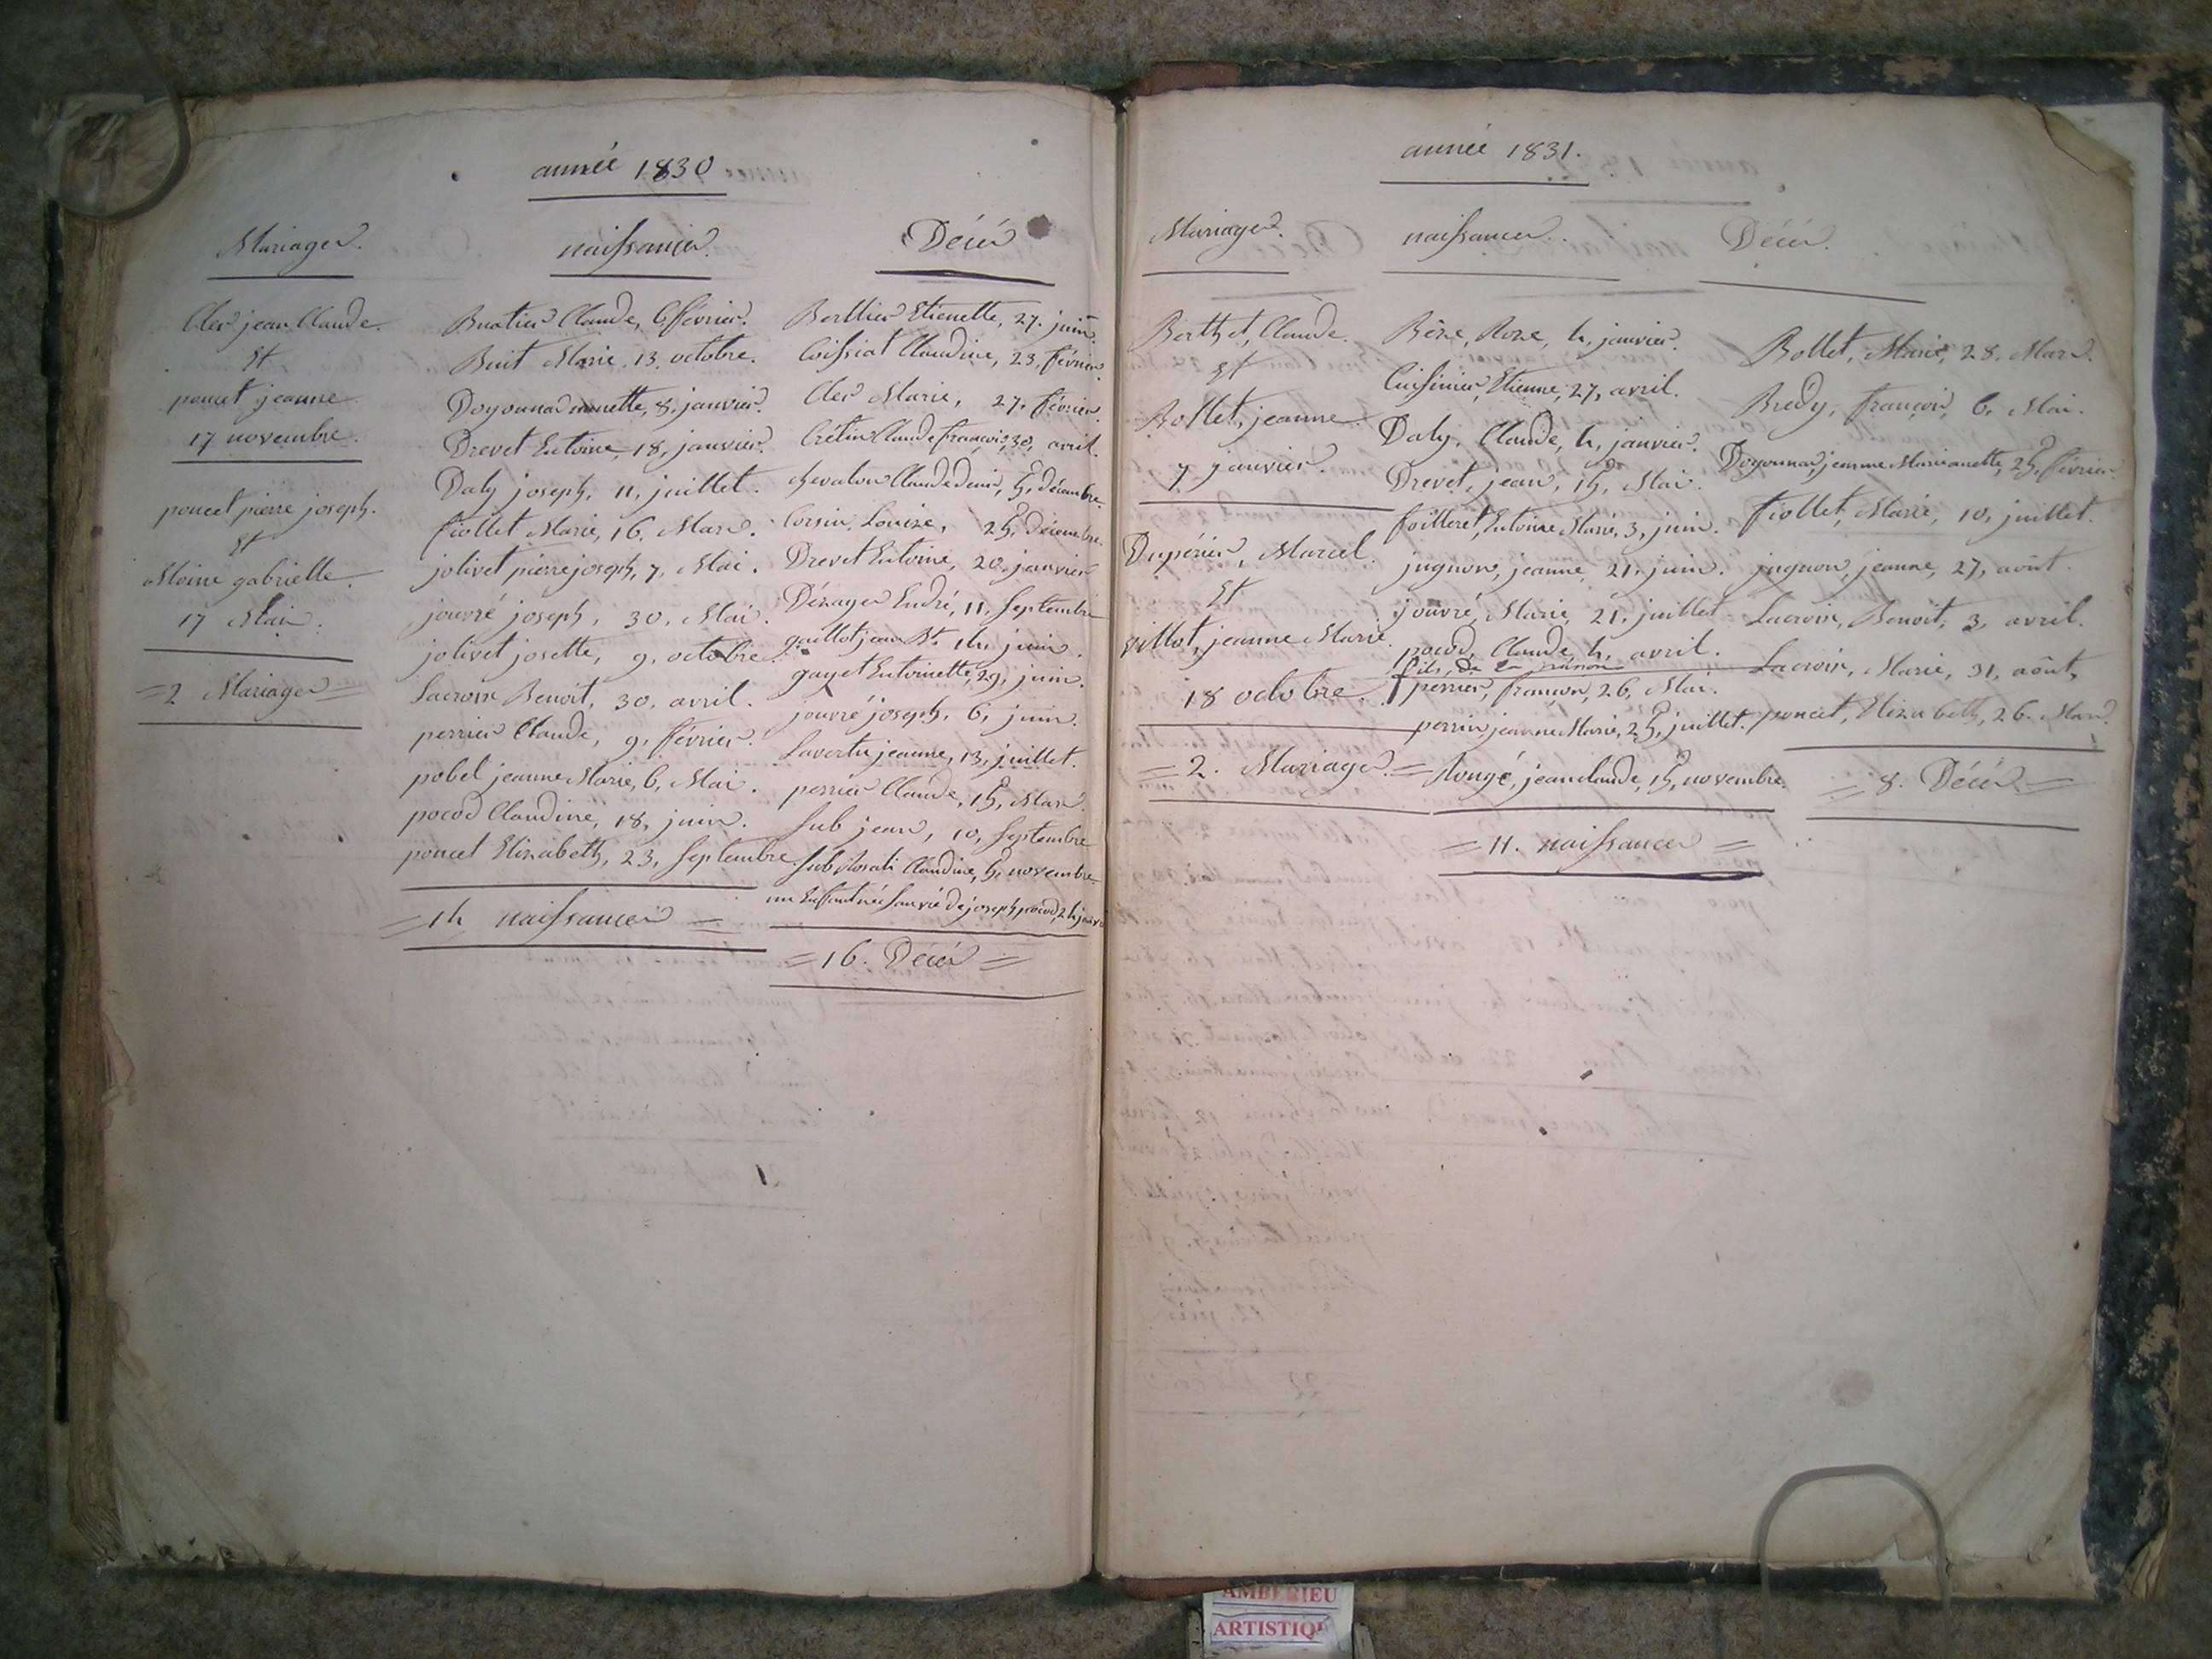 année 1830
Mariages.
Cler jean Claude.
Et
poncet jeanne.
17 novembre.
poncet pierre joseph.
Et
Moine gabrielle.
17 Mai.
=2 Mariages=
naissances.
Buatier Claude, 6, février.
Buit Marie, 13, octobre.
Doyonnad nanette, 8, janvier.
Drevet Entoine, 18, janvier.
Daly joseph, 11, juillet.
fiollet Marie, 16, Mars.
jolivet pierre joseph, 7, Mai.
jouvré joseph, 30, Mai.
jolivet josette, 9, octobre.
Lacroix Benoit, 30, avril.
perrier Claude, 9, février.
pobel jeanne Marie, 6, Mai.
pocod Claudine, 18, juin.
poncet Elizabeth, 23, Septembre.
=14 naissances=
Décés
Berllier Etienette, 27, juin.
Coissiat Claudine, 23, février.
Cler Marie, 27, février.
Crétin Claude françois, 30, avril.
chevalon Claude Denis, 5, décembre.
Corsin, Louise, 25, décembre.
Drevet Entoine, 20, janvier
Dézager Endré, 11, Septembre
guillot jean Bt. 14, juin.
gayet Entoinette, 29, juin.
jouvré joseph, 6, juin.
Lavertu jeanne, 13, juillet.
perrier Claude, 15, Mars.
Sub jean, 10, Septembre
Sub Rosali Claudine, 5, novembre.
un Enffant né Sans vie de joseph pocod, 24 janvier
=16. Décés=
année 1831.
Mariages.
Berthet, Claude.
Et
Bollet, jeanne.
7 janvier.
Dupérier, Marcel.
Et
villot, jeanne Marie.
18 octobre.
=2. Mariages.=
naissances.
Bêze, Roze, 4, janvier.
Cuisinier, Etienne, 27, avril.
Daly, Claude, 4, janvier.
Drevet, jean, 15, Mai.
foilleret, Entoine Marie, 3, juin.
jugnon, jeanne, 21, juin.
jouvré, Marie, 21, juillet
pocod, Claude, 4, avril.
fils, de la
perrier, françois, 26, Mai.
perrin, jeanne Marie, 25, juillet.
Rongé, jean claude, 15, novembre.
=11. naissances=
Décés.
Bollet, Marie, 28, Mars.
Bredy, françois, 6, Mai.
Doyonnad, jeanne Marie anette, 25, février.
fiollet, Marie, 10, juillet.
jugnon, jeanne, 27, août.
Lacroix, Benoit, 3, avril.
Lacroix, Marie, 31, août,
poncet, Elizabeth, 26, Mars.
=8. Décés=
AMBERIEU
ARTISTIQ